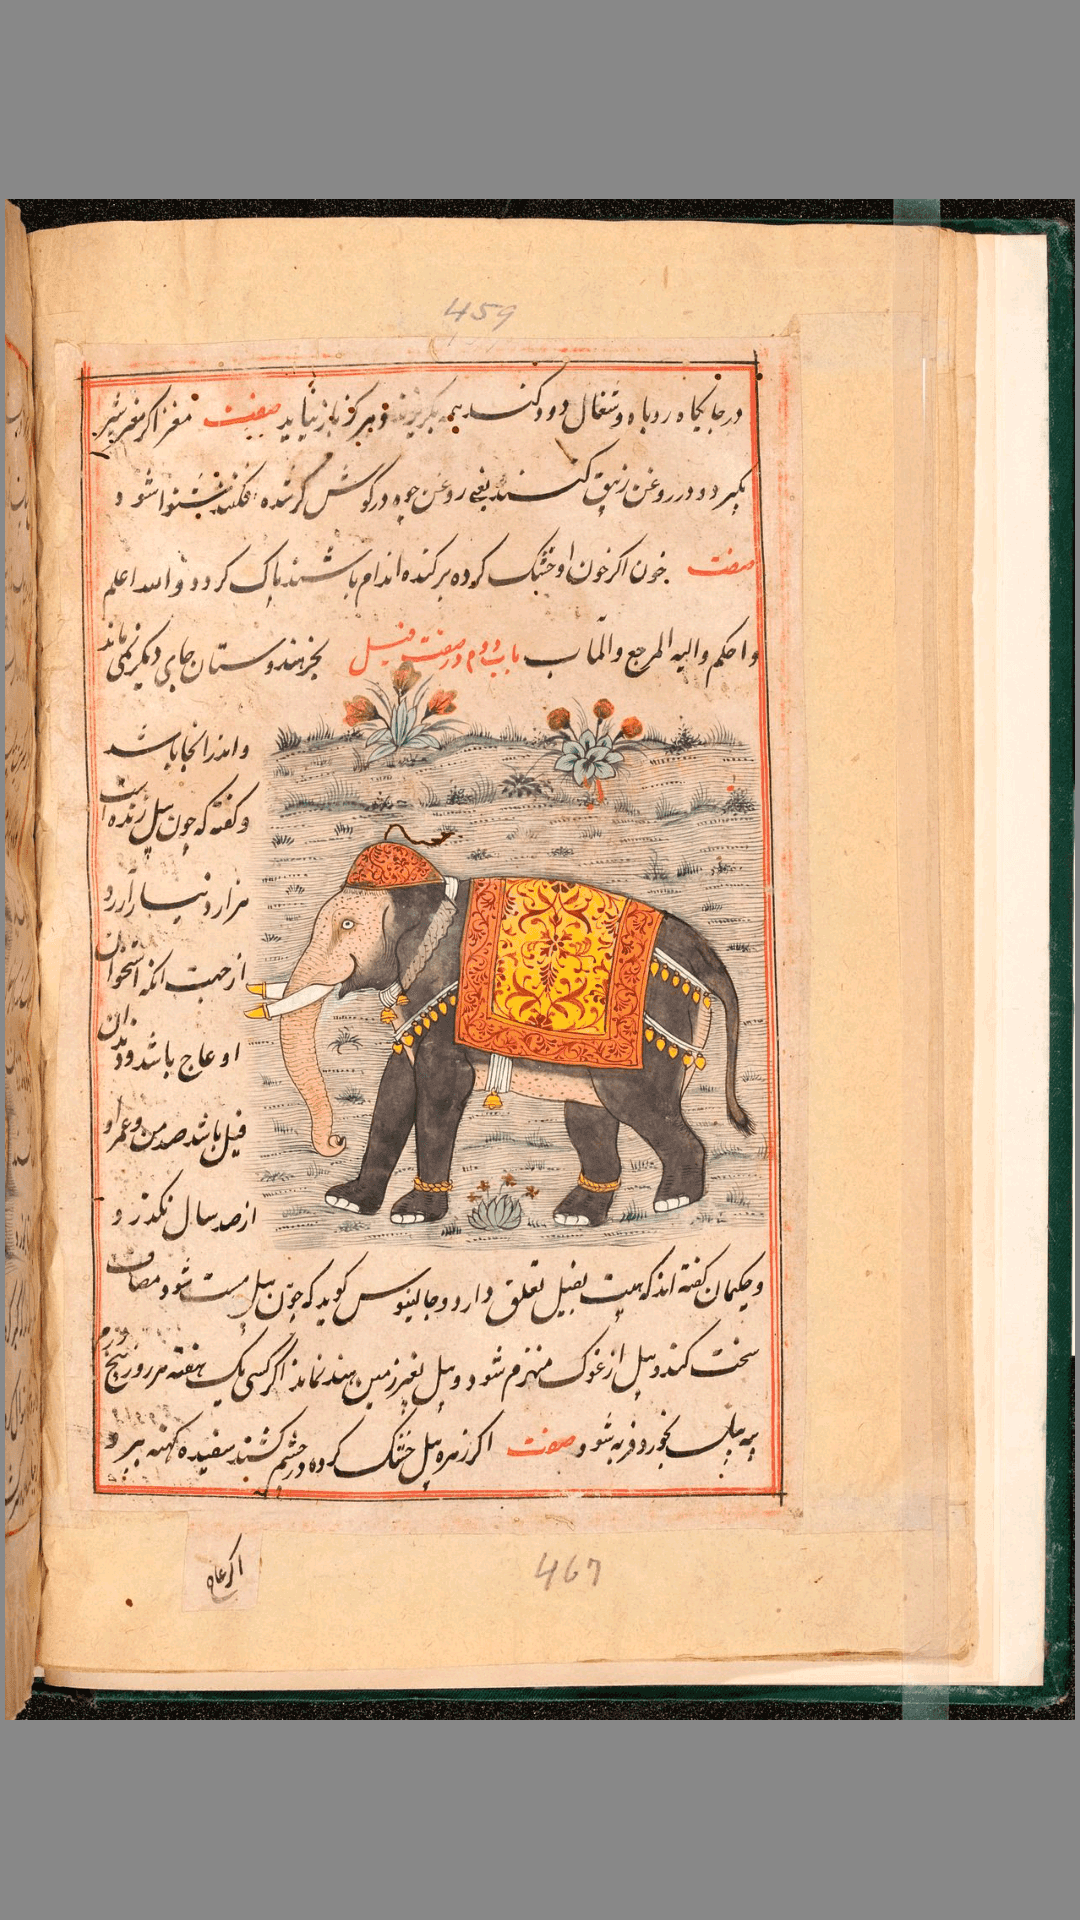 459
در جایگاه روباه و شغال دود کنند همه بگریزند و هرگز باز نیاید صفت مغز اگر مغز شیر
بگیرد و در روغن زنبق کنند یعنی روغن چوه در گوش کر شده فکند شنوا شود و
صفت خون اگر خون او خشک کرده بر کنده اندام باشند پاک کردد و الله اعلم
و احکم و الیه المرجع و المآب باب دوم در صفت فیل بجز هندوستان جایی دیگر نمی ماند
و اندر انجا باشد
و گفته که چون پیل زنده است
هزار دینار ارزد
از جهت انکه استخوان
او عاج باشد و دندان
فیل باشد صد من و عمر او
از صد سال نکذرد و
و حکیمان گفته اند که هیبت بفیل تعلق دارد و جالینوس کوید که چون پیل مست شود مصاف
سخت کند و پیل از غوک منهزم شود و پیل بغیر زمین هند نماند اگر کسی یک هفته هر روز پنج درم
پیه پیل بخورد فربه شود صفت اگر زهره پیل خشک کرده در چشم کشند سفیده کهنه ببرد
اگر عاج
467